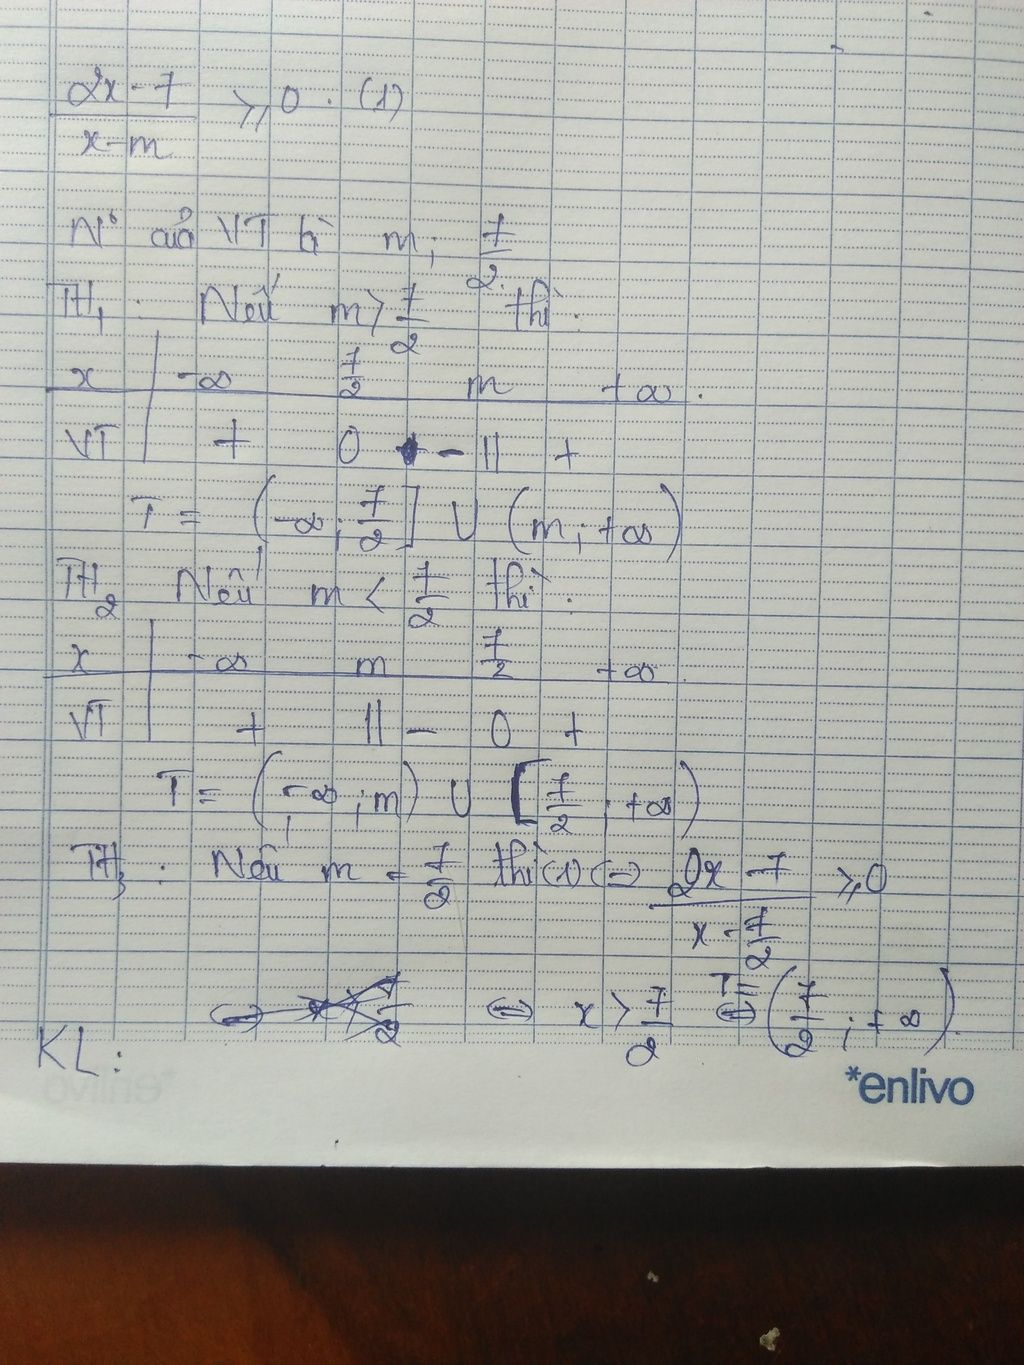 2x - 7 / x - m ≥ 0. (1)
N° của VT là m; 7/2.
TH1: Nếu m > 7/2 thì:
x | -∞ 7/2 m +∞.
VT | + 0 - || +
T = (-∞; 7/2] ∪ (m; +∞)
TH2 Nếu m < 7/2 thì:
x | -∞ m 7/2 +∞
VT | + || - 0 +
T = (-∞; m) ∪ [7/2; +∞)
TH3: Nếu m = 7/2 thì (1) ⇔ 2x - 7 / x - 7/2 ≥ 0
⇔ x > 7/2 T = (7/2; +∞).
KL:
*enlivo